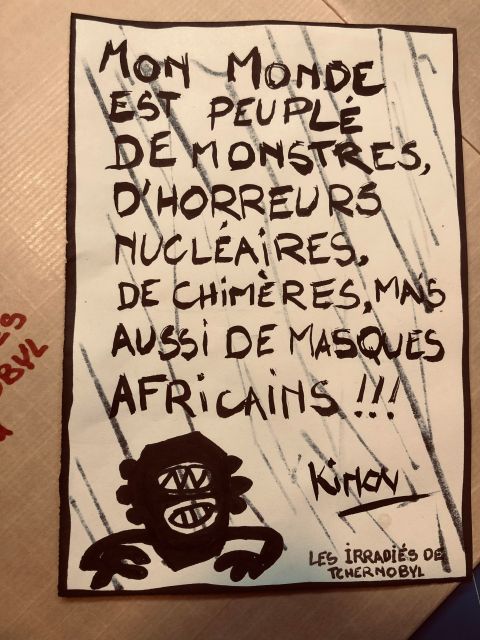 MON MONDE
EST PEUPLÉ
DE MONSTRES,
D'HORREURS
NUCLÉAIRES,
DE CHIMÈRES, MAIS
AUSSI DE MASQUES
AFRICAINS !!!
LES IRRADIÉS DE
TCHERNOBYL